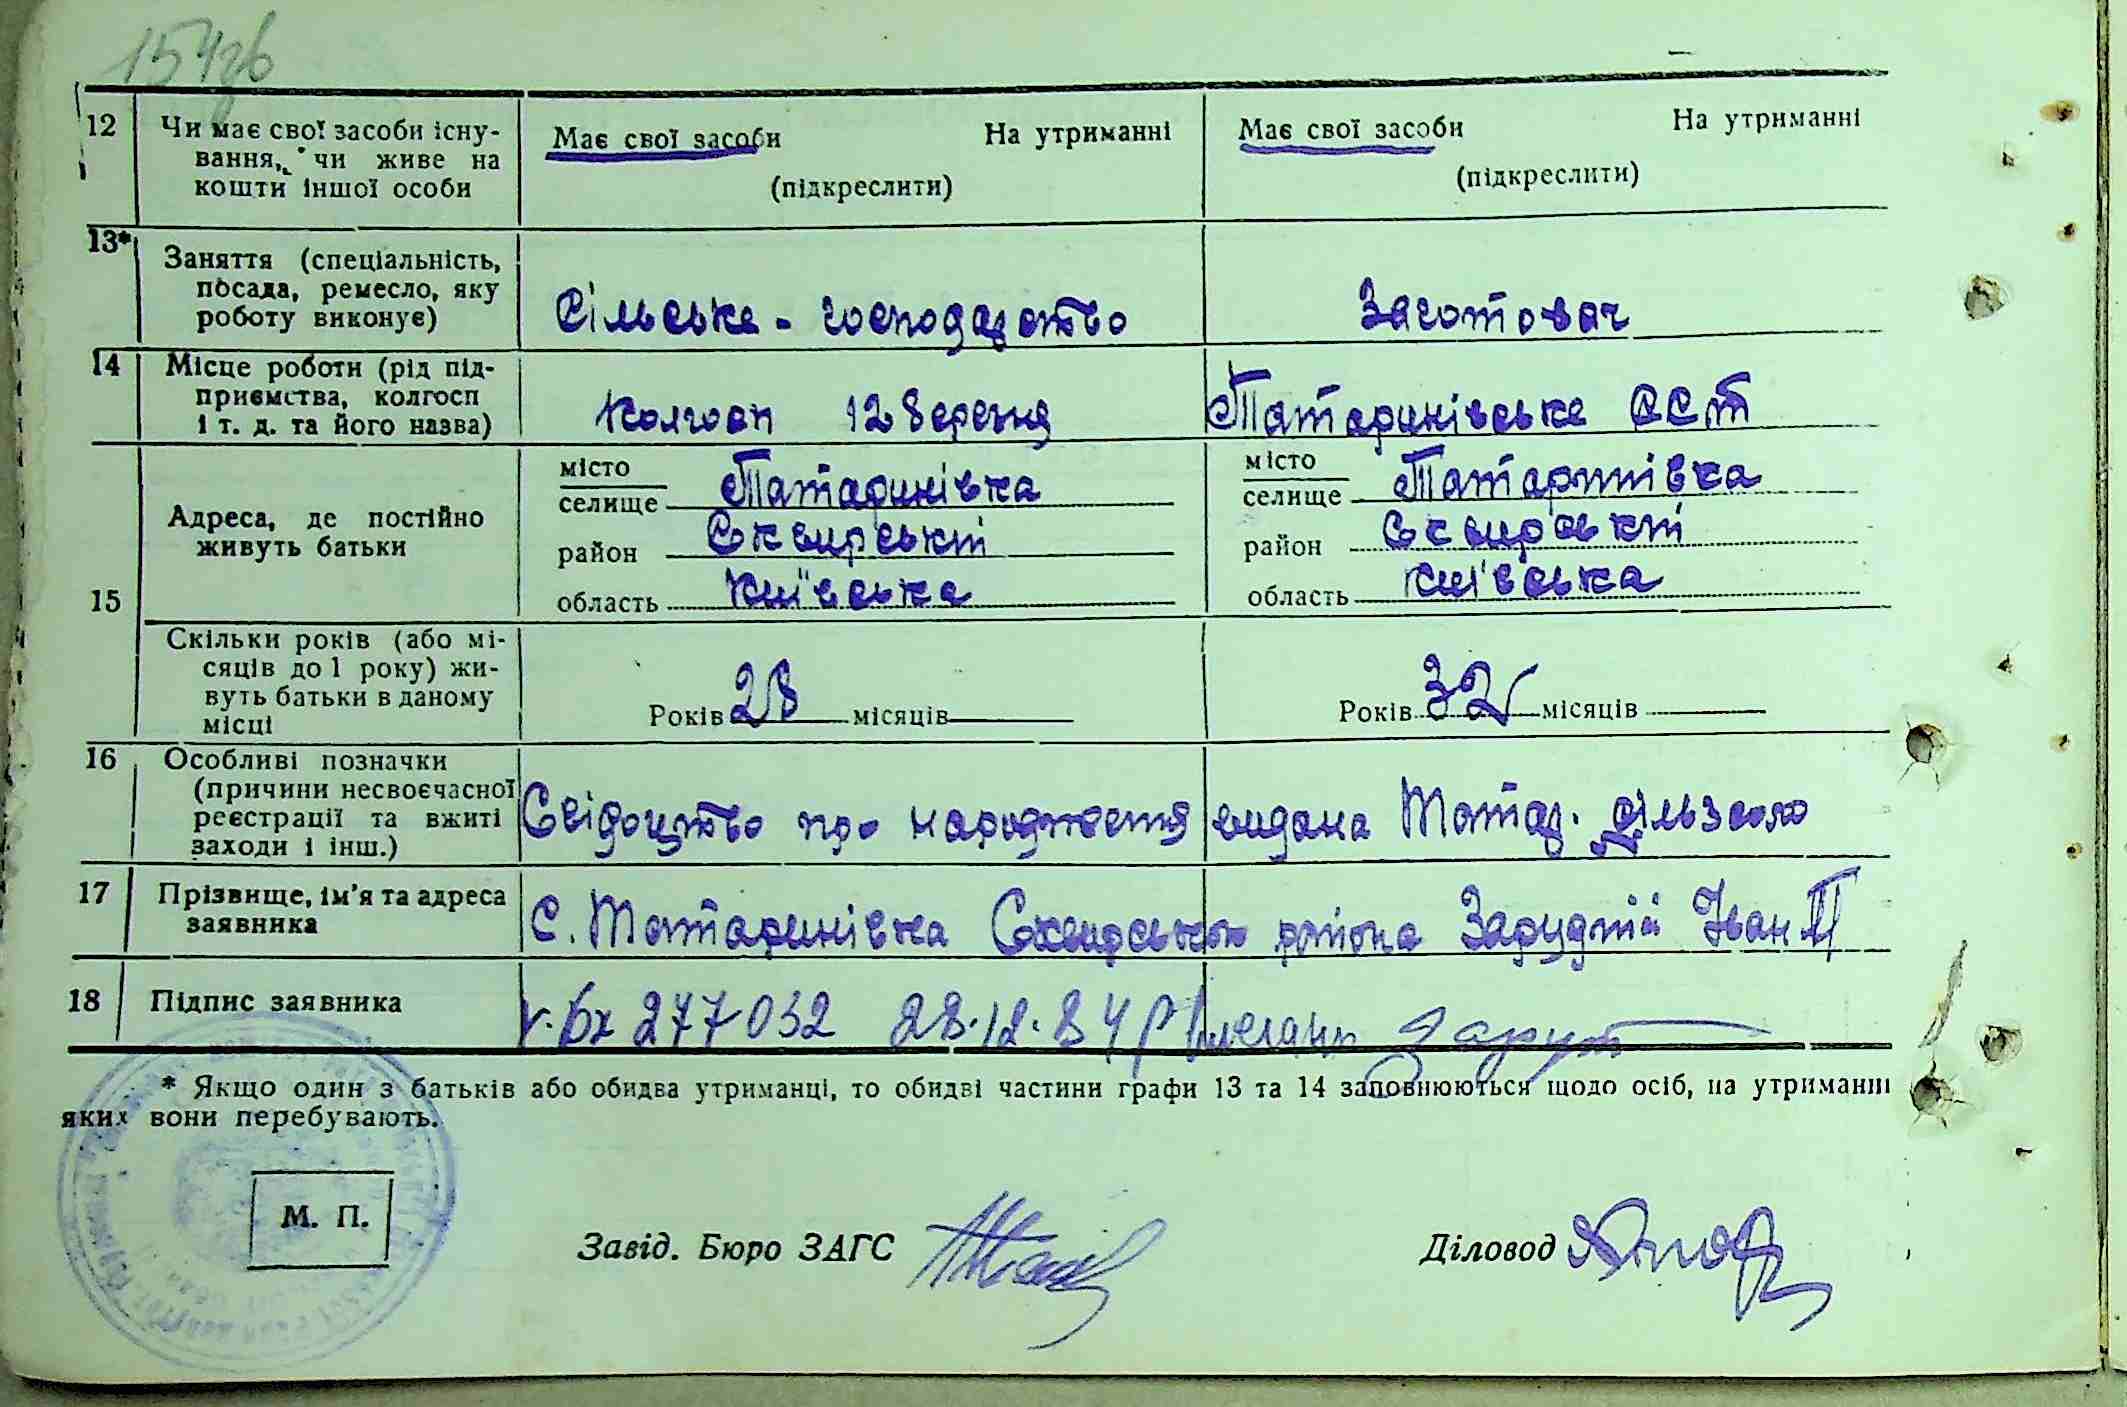 154зв
12 Чи має свої засоби існу-
вання, чи живе на
кошти іншої особи
Має свої засоби На утриманні
(підкреслити)
Має свої засоби На утриманні
(підкреслити)
13* Заняття (спеціальність,
посада, ремесло, яку
роботу виконує)
Сільське - господарство
Заготовач
14 Місце роботи (рід під-
приємства, колгосп
і т. д. та його назва)
Колгосп 12 Березня
Татаринівське ССТ
15 Адреса, де постійно
живуть батьки
місто
селище Татаринівка
район Сквирській
область Київська
місто
селище Татаринівка
район Сквирській
область Київська
Скільки років (або мі-
сяців до 1 року) жи-
вуть батьки в даному
місці
Років 28 місяців
Років 32 місяців
16 Особливі позначки
(причини несвоєчасної
реєстрації та вжиті
заходи і інш.)
Свідоцтво про народження видана Татар.
17 Прізвище, ім'я та адреса
заявника
С. Татаринівка Сквирського района Зарудній Іван П
18 Підпис заявника
277032 28.12.84 р
* Якщо один з батьків або обидва утриманці, то обидві частини графи 13 та 14 заповнюються щодо осіб, на утриманні
яких вони перебувають.
М. П.
Завід. Бюро ЗАГС
Діловод